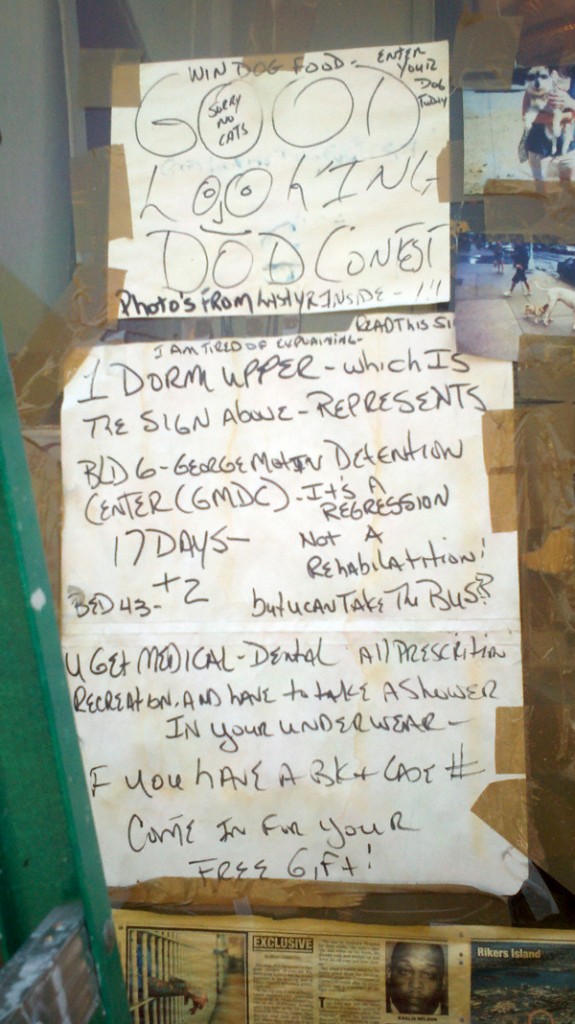 WIN DOG FOOD - ENTER
YOUR
DOG
TODAY
GOOD
SORRY
NO
CATS
LOOKING
DOD CONEST
Photo's From Last YR Inside - !!!
READ THIS SI
I AM TIRED OF EXPLAINING -
1 DORM UPPER - which IS
THE SIGN ABOVE - REPRESENTS
BLD 6 - GEORGE MOTIN DETENTION
CENTER (GMDC) - It'S A
REGRESSION
17 DAYS - NOT A
REhABILATATION!
BED 43 - +2 but u CAN TAKE The BUS?
U GEt MEDICAL - DENTAL All PRESCRITION
RECREATION, AND hAVE to tAKE A ShOWER
IN YOUR UNDERWEAR -
F YOU hAVE A BK + CASE #
COME IN FOR YOUR
FREE GiFt!
EXCLUSIVE
Rikers Island